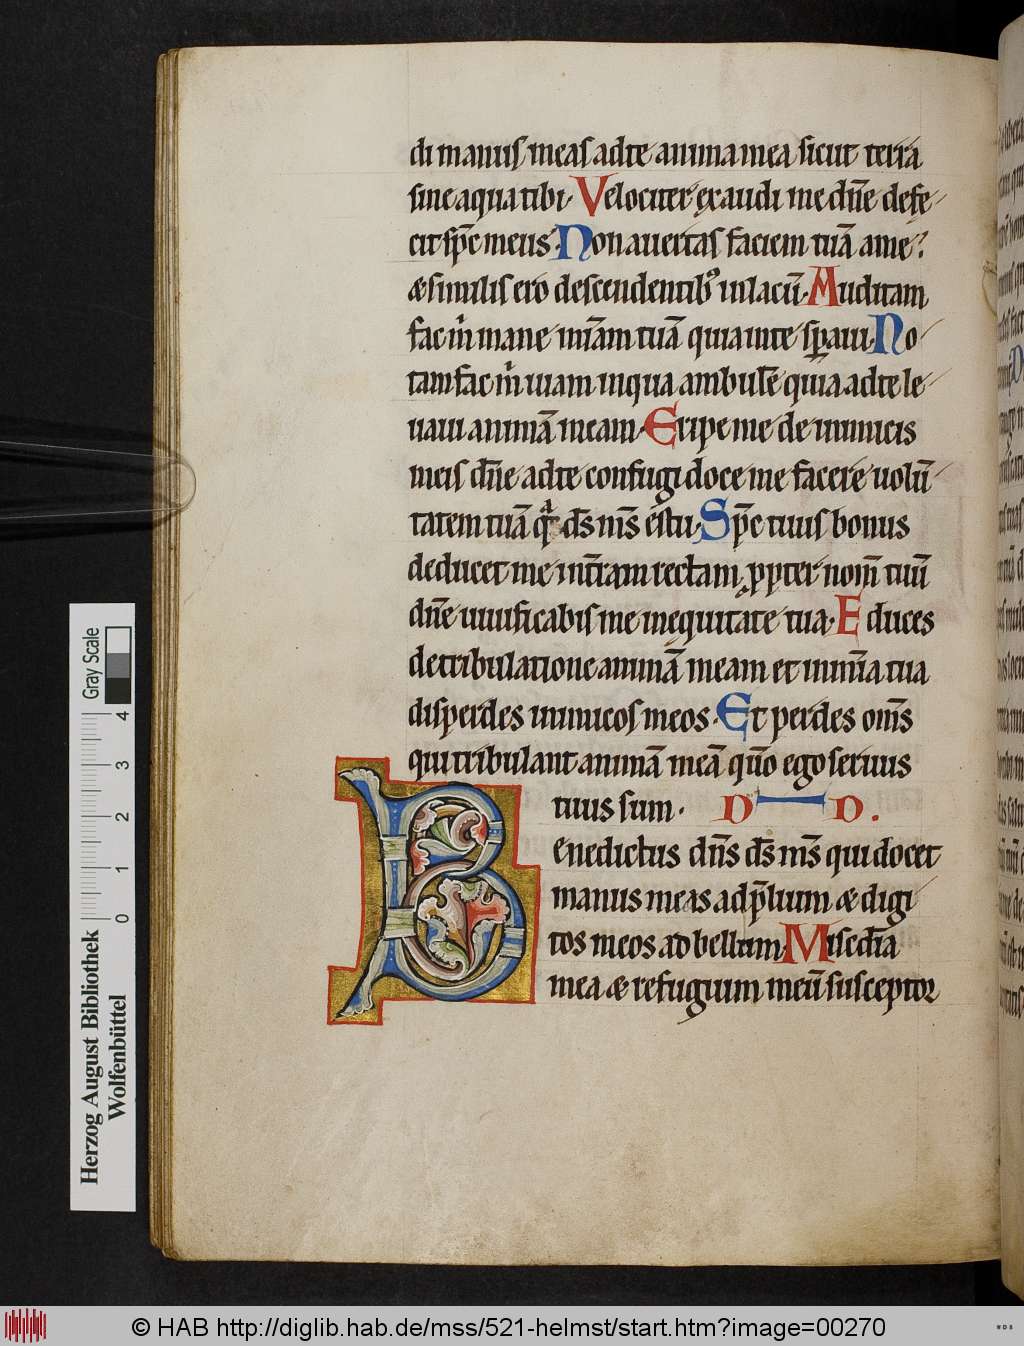 di manus meas ad te anima mea sicut terra
sine aqua tibi. Velociter exaudi me dñe defe-
cit spc meus. Non auertas faciem tuā a me?
& similis ero descendentib⁹ in lacū. Auditam
fac m̄ mane mīam tuā quia in te spaui. No-
tam fac m̄ uiam in qua ambulē quia ad te le-
uaui animā meam. Eripe me de inimicis
meis dñe ad te confugi doce me facere uolū-
tatem tuā q̄ ds ms es tu. Spc tuus bonus
deducet me in t̄ram rectam, ppter nom̄ tuū
dñe uiuificabis me in equitate tua. Educes
de tribulatione animā meam et in mīa tua
disperdes inimicos meos. Et perdes oms
qui tribulant animā meā qm̄o ego seruus
tuus sum. D D.
Benedictus dns ds ms qui docet
manus meas ad p̄lium & digi
tos meos ad bellum. Miscd̄ia
mea & refugium meū susceptor
Gray Scale
4
3
2
1
0
Herzog August Bibliothek
Wolfenbüttel
© HAB http://diglib.hab.de/mss/521-helmst/start.htm?image=00270